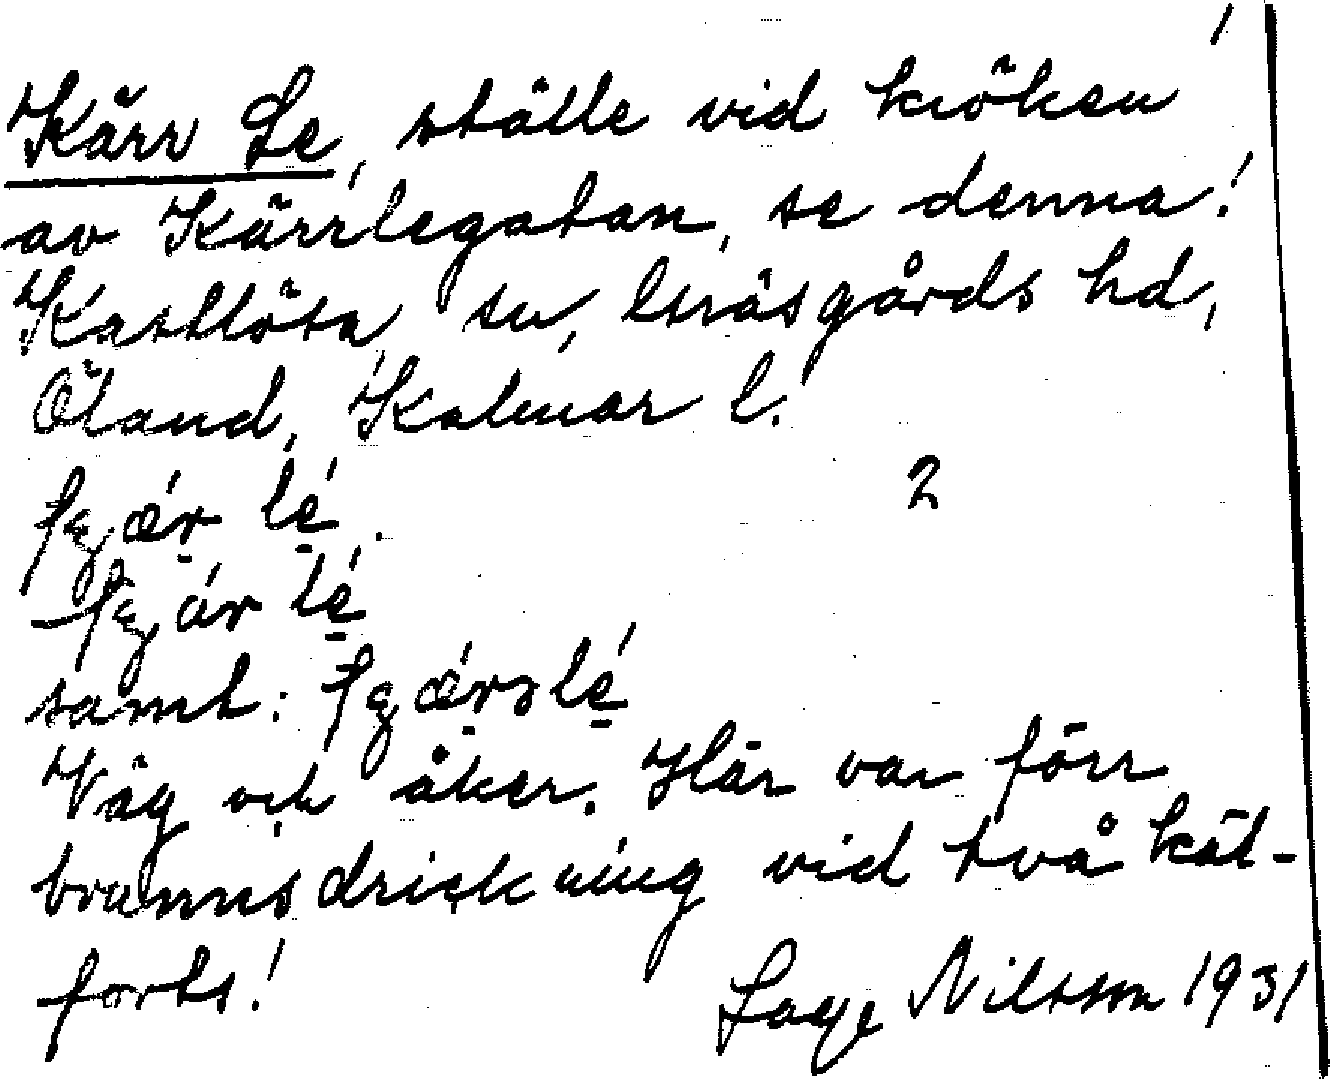 1
Kärr Le, ställe vid kröken
av Kärrlegatan, se denna!
Kastlösa sn, Gräsgårds hd,
Öland, Kalmar l.
2
samt:
Väg och åker. Här var förr
brunnsdrickning vid två käl-
forts! Lage Nilsson 1931